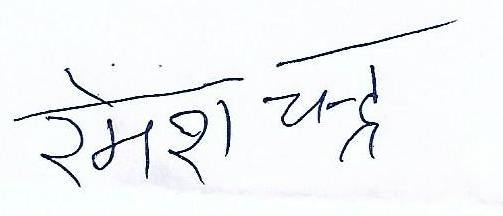 रमेश चन्द्र